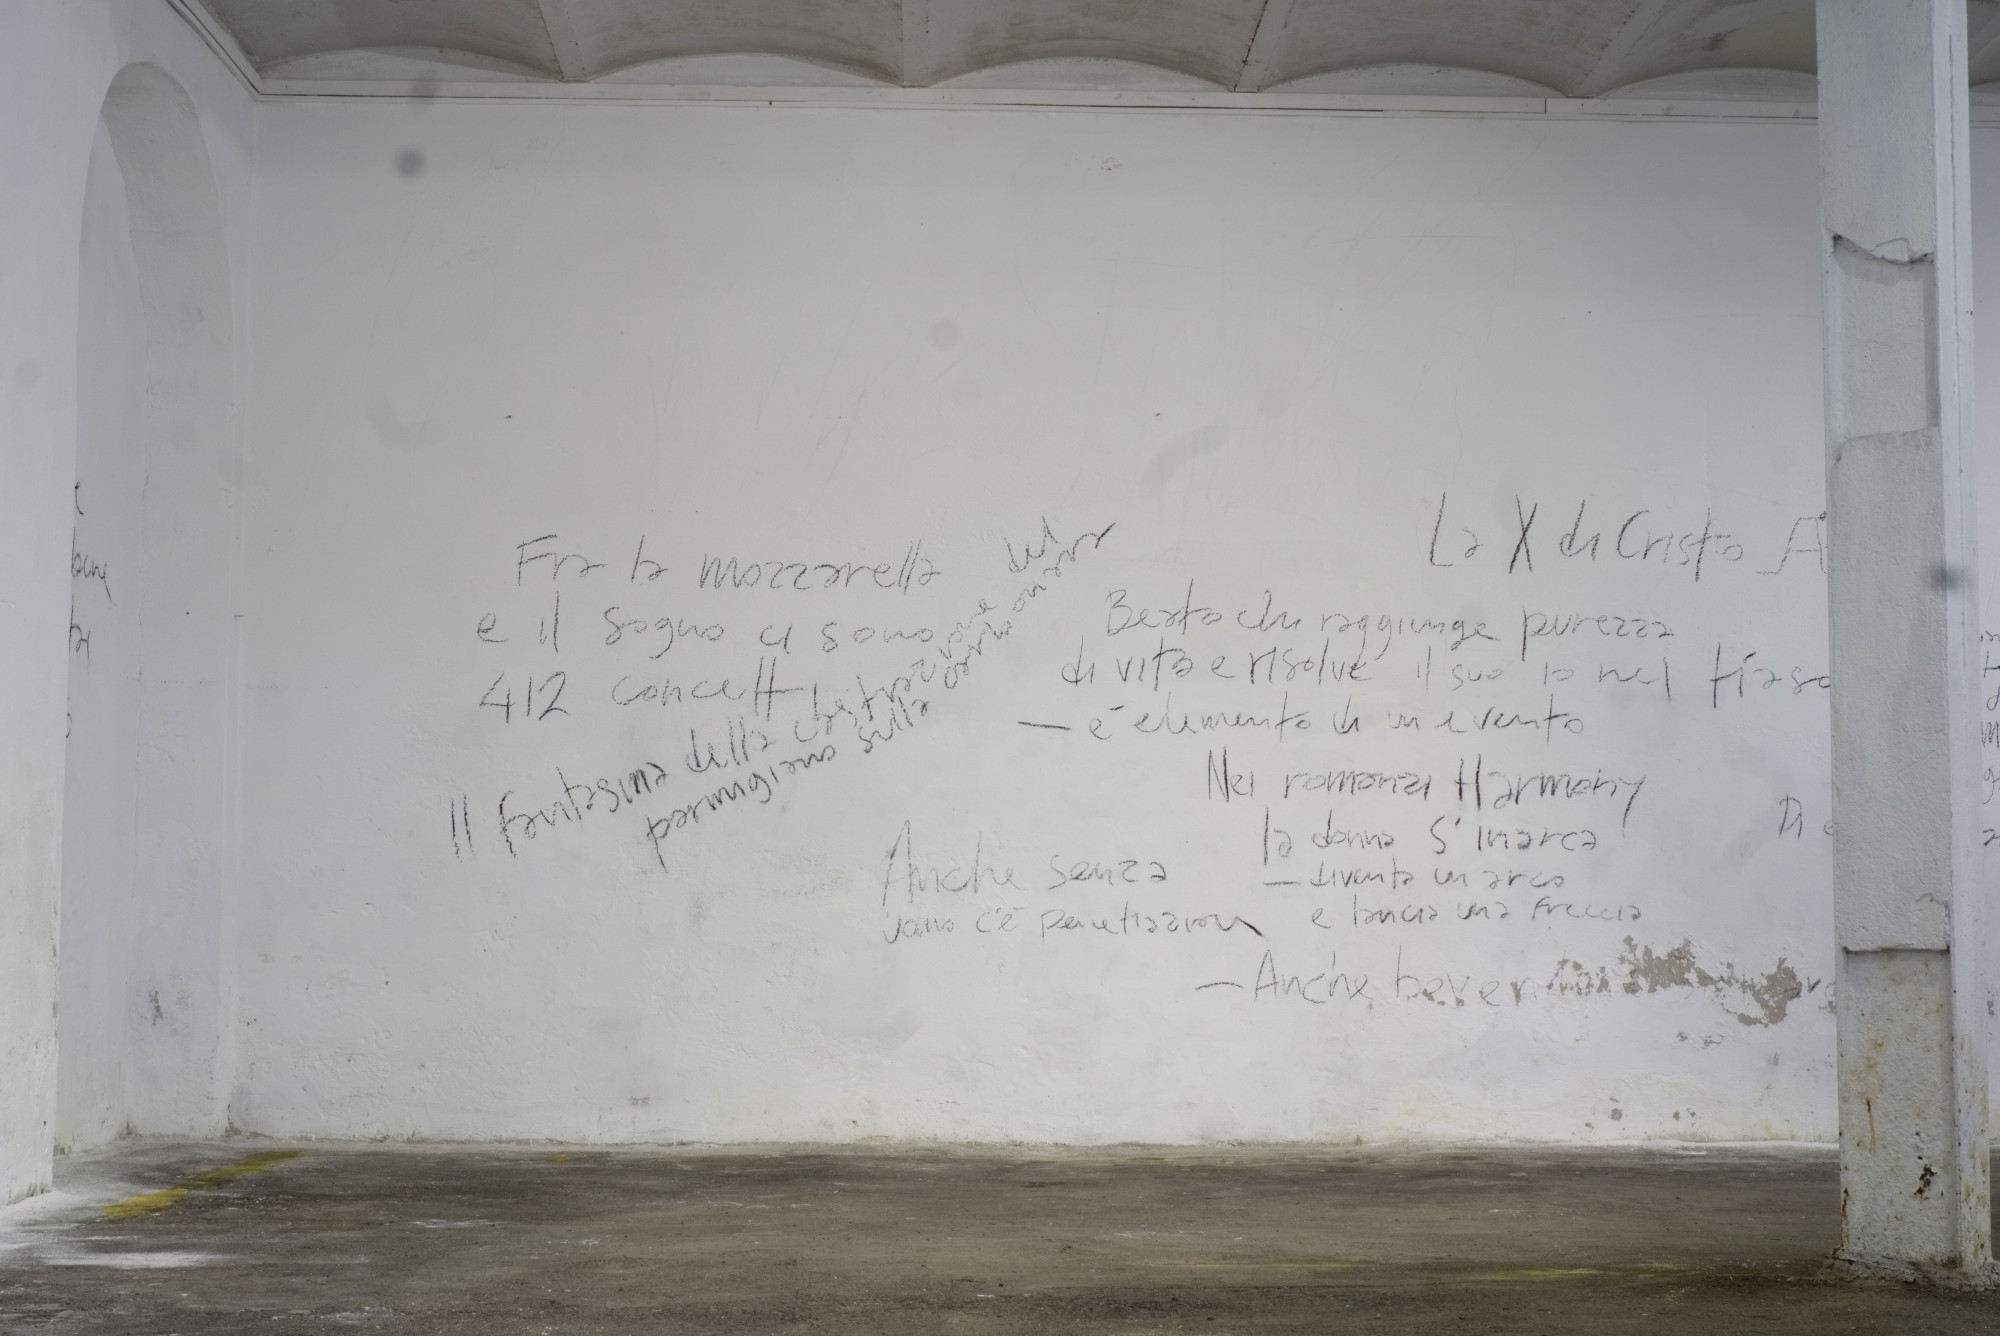 Fra la mozzarella
e il sogno ci sono
412 concetti
Il fantasma della castrazione del
parmigiano sulla
La X di Cristo A
Beato chi raggiunge purezza
di vita e risolve il suo io nel tiaso
— è elemento di un evento
Nei romanzi Harmony
la donna s'inarca
— diventa un arco
e lancia una freccia
Anche senza
vano c'è penetrazione
— Anche
Di